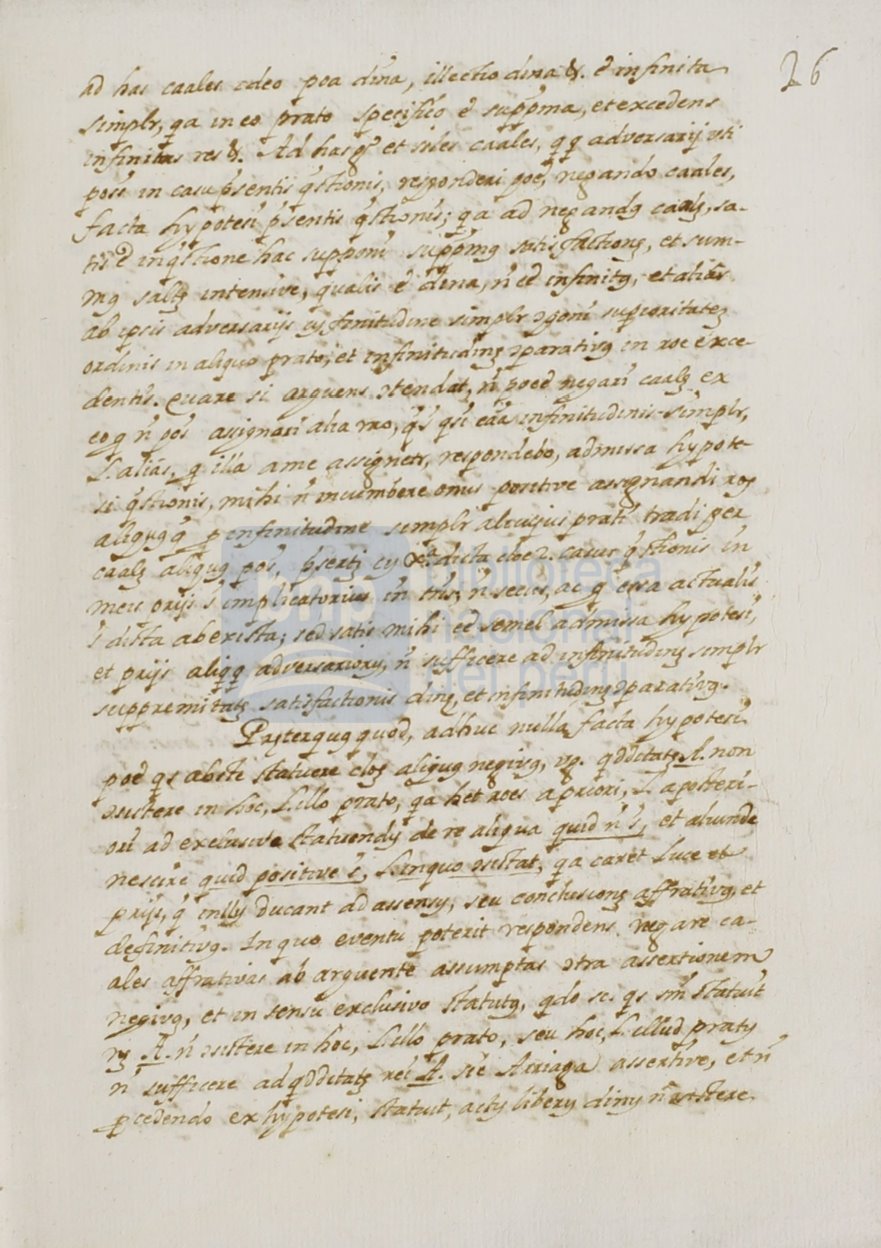 26
ad has caales ideo poa dina, illectio dina &. è infinita
simplr, qa in eo prato specifico è suppma, et excedens
infinitas res &. Ad has et siles caales, qq adversarij uti
poss in casu psentis qstionis, responderi poe, negando caales,
facta hypotesi psentis qstionis; qa ad negandq caalz, sa-
tis è in qstione hac supponi suppmq satisfactionz, et sum-
mq saltz intensive, qualis è dina, ñ eè infinitq, et aliàs
ab ipsis adversarijs cu finitudine simplr ɔponi superioritatez
ordinis in aliquo prato, et infinitudinz ɔparativq in roe exce-
dentis. Quare si arguens ɔtendat, ñ poè negari caalz ex
eo q ñ poss assignari alia rao, qsi infinitudinis simplr,
l. aliàs, q illa a me assignetr, respondebo, admissa hypote-
si qstionis, mihi ñ incumbere onus positive assignandi roz
aliquq q p infinitudine simplr alicujus prati tradi per
caalz aliquq poss, psertz cu dicta casus qstionis in
meis prijs implicatorius in tris, ñ secus, ac q essa actualis
dicta ab exista; sed satis mihi eè semel admissa hypotesi,
et prijs aliqq adversariory, ñ sufficere ad infinitudinz simplr
suppremitatz satisfactionis dinz, et infinitudinz ɔparativq.
Prqterquq quod, adhuc nulla facta hypotesi
poè qs absti statuere cloz aliquq negivq, vg. qdditatz A. non
ɔsistere in hoc, l. illo prato, qa het roes a priori, l. a posteri-
ori ad exclusive statuendu de re aliqua quid ñ è, et aliunde
nescire quid positive è, l. in quo ɔsistat, qa caret luce et
prijs, q illu ducant ad assensu, seu conclusionz affrativq, et
definitivq. In quo eventu poterit respondens negare ca-
ales affrativas ab arguente assumptas ɔtra assertionem
negivq, et in sensu exclusivo statutq, qdo sc. qs sm statuit
rz A. ñ ɔsistere in hoc, l. illo prato, seu hoc, l. illud pratu
ñ sufficere ad qdditatz rei A. sic Arriaga assertive, et ñ
pcedendo ex hypotesi, statuit, actu liberu dinu ñ ɔsistere.
biblioteca
nacional
del perú